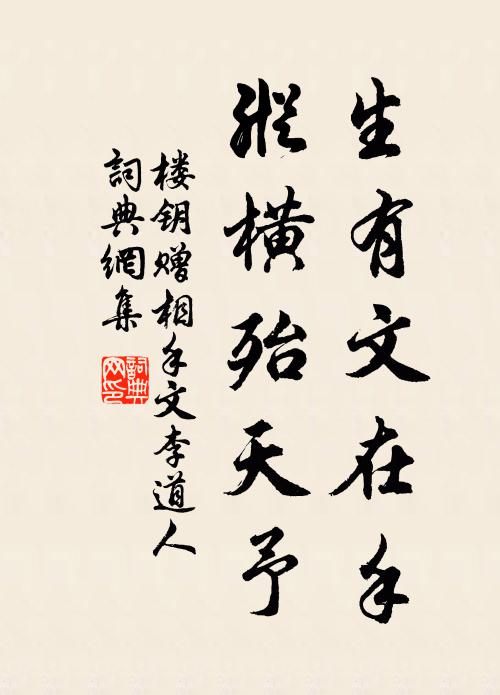 生有文在手
縱橫殆天予
楼钥赠相手文李道人
詞典網集
詞典
网印